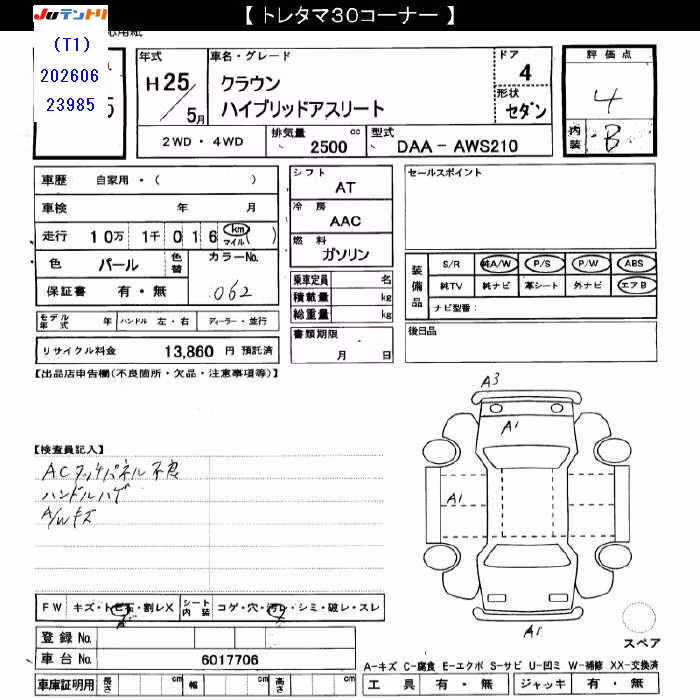 【 トレタマ30コーナー 】
Juテントリ
(T1)
202606
23985
年式
H25/5月
車名・グレード
クラウン
ハイブリッドアスリート
ドア
4
形状
セダン
評価点
4
内装
B
2WD・4WD
排気量 2500 cc
型式 DAA-AWS210
車歴 自家用・( )
車検 年 月
走行 10万 1千 016 (km マイル)
色 パール 色替 カラーNo.
062
保証書 有・無
モデル年式 年 ハンドル 左・右 ディーラー・並行
リサイクル料金 13,860 円 預託済
シフト
AT
冷房
AAC
燃料
ガソリン
乗車定員 名
積載量 kg
総重量 kg
書類期限
月 日
セールスポイント
装備品
S/R 純A/W P/S P/W ABS
純TV 純ナビ 革シート 外ナビ エアB
ナビ型番:
後日品
【出品店申告欄(不良箇所・欠品・注意事項等)】
【検査員記入】
ACタッチパネル不良
ハンドルハゲ
A/Wキズ
A3
A1
A1
A1
FW キズ・トビ石・割レX シート内装 コゲ・穴・汚レ・シミ・破レ・スレ
A
登録No.
車台No. 6017706
車庫証明用 長さ cm 幅 cm 高さ cm
スペア
A-キズ C-腐食 E-エクボ S-サビ U-凹ミ W-補修 XX-交換済
工具 有・無 ジャッキ 有・無